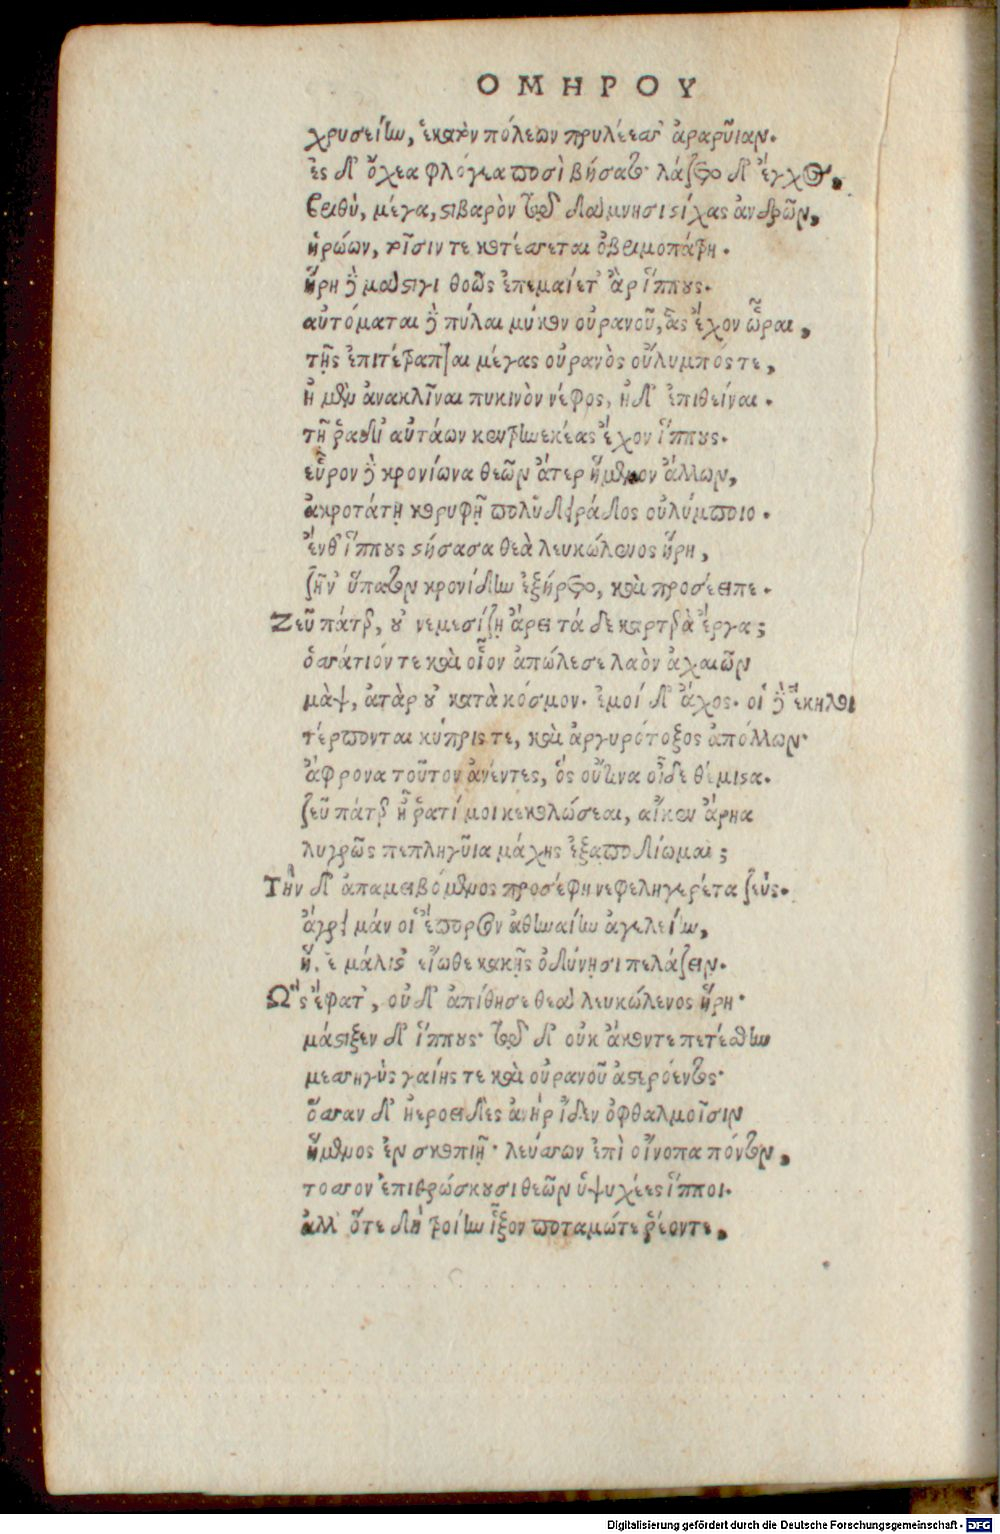 ΟΜΗΡΟΥ
χρυσείην, ἑκατὸν πόλεων πρυλέεσσ' ἀραρῦιαν.
ἐς δ' ὄχεα φλόγεα ποσὶ βήσατο· λάζετο δ' ἔγχος,
βριθὺ, μέγα, στιβαρὸν τῷ δάμνησι στίχας ἀνδρῶν,
ἡρώων, τοῖσίν τε κοτέσσεται ὀβριμοπάτρη.
ἥρη δὲ μάστιγι θοῶς ἐπεμαίετ' ἂρ ἵππους.
αὐτόμαται δὲ πύλαι μύκον οὐρανοῦ, ἃς ἔχον ὧραι,
τῇς ἐπιτέτραπται μέγας οὐρανὸς οὔλυμπός τε,
ἠ μὲν ἀνακλῖναι πυκινὸν νέφος, ἠδ' ἐπιθεῖναι.
τῇ ῥα δι' αὐτάων κεντρηνεκέας ἔχον ἵππους.
εὗρον δὲ κρονίωνα θεῶν ἄτερ ἥμενον ἄλλων,
ἀκροτάτῃ κορυφῇ πολυδειράδος οὐλύμποιο.
ἔνθ' ἵππους στήσασα θεὰ λευκώλενος ἥρη,
ζῆν' ὕπατον κρονίδην ἐξήρετο, καὶ προσέειπε.
Ζεῦ πάτερ, οὐ νεμεσίζῃ ἄρει τάδε καρτερὰ ἔργα;
ὁσσάτιόν τε καὶ οἷον ἀπώλεσε λαὸν ἀχαιῶν
μὰψ, ἀτὰρ οὐ κατὰ κόσμον. ἐμοί δ' ἄχος. οἱ δὲ ἕκηλοι
τέρπονται κύπρις τε, καὶ ἀργυρότοξος ἀπόλλων·
ἄφρονα τοῦτον ἀνέντες, ὃς οὔτινα οἶδε θέμιστα.
ζεῦ πάτερ ἦ ῥά τί μοι κεχολώσεαι, αἴκεν ἄρηα
λυγρῶς πεπληγῦια μάχης ἐξαποδίωμαι;
Τὴν δ' ἀπαμειβόμενος προσέφη νεφεληγερέτα ζεύς.
ἄγρει μάν οἱ ἔπορσον ἀθηναίην ἀγελείην,
ἥ ἑ μάλιστ' εἴωθε κακῇς ὀδύνῃσι πελάζειν.
Ὣς ἔφατ', οὐδ' ἀπίθησε θεὰ λευκώλενος ἥρη·
μάστιξεν δ' ἵππους· τὼ δ' οὐκ ἄκοντε πετέσθην
μεσσηγὺς γαίης τε καὶ οὐρανοῦ ἀστερόεντος·
ὅσσον δ' ἠεροειδὲς ἀνὴρ ἴδεν ὀφθαλμοῖσιν
ἥμενος ἐν σκοπιῇ· λεύσσων ἐπὶ οἴνοπα πόντον,
τόσσον ἐπιθρώσκουσι θεῶν ὑψυχέες ἵπποι.
ἀλλ' ὅτε δὴ τροίην ἷξον ποταμώ τε ῥέοντε,
Digitalisierung gefördert durch die Deutsche Forschungsgemeinschaft - DFG